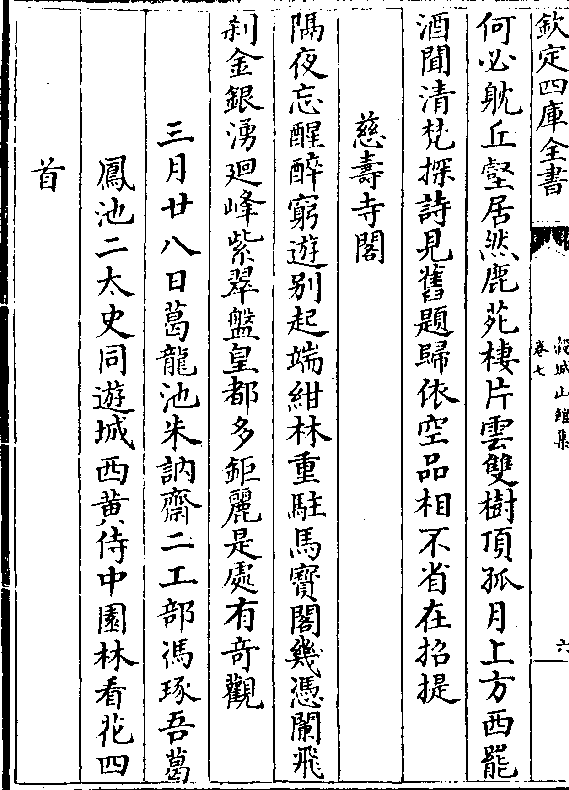 欽定四庫全書
穀城山館集
卷七
六
何必躭丘壑居然鹿苑棲片雲雙樹頂孤月上方西罷
酒聞清梵探詩見舊題歸依空品相不省在招提
慈壽寺閣
隅夜忘醒醉窮遊别起端紺林重駐馬寶閣幾憑闌飛
刹金銀湧廻峰紫翠盤皇都多鉅麗是處有奇觀
三月廿八日葛龍池朱訥齋二工部馮琢吾葛
鳳池二太史同遊城西黄侍中園林看花四
首